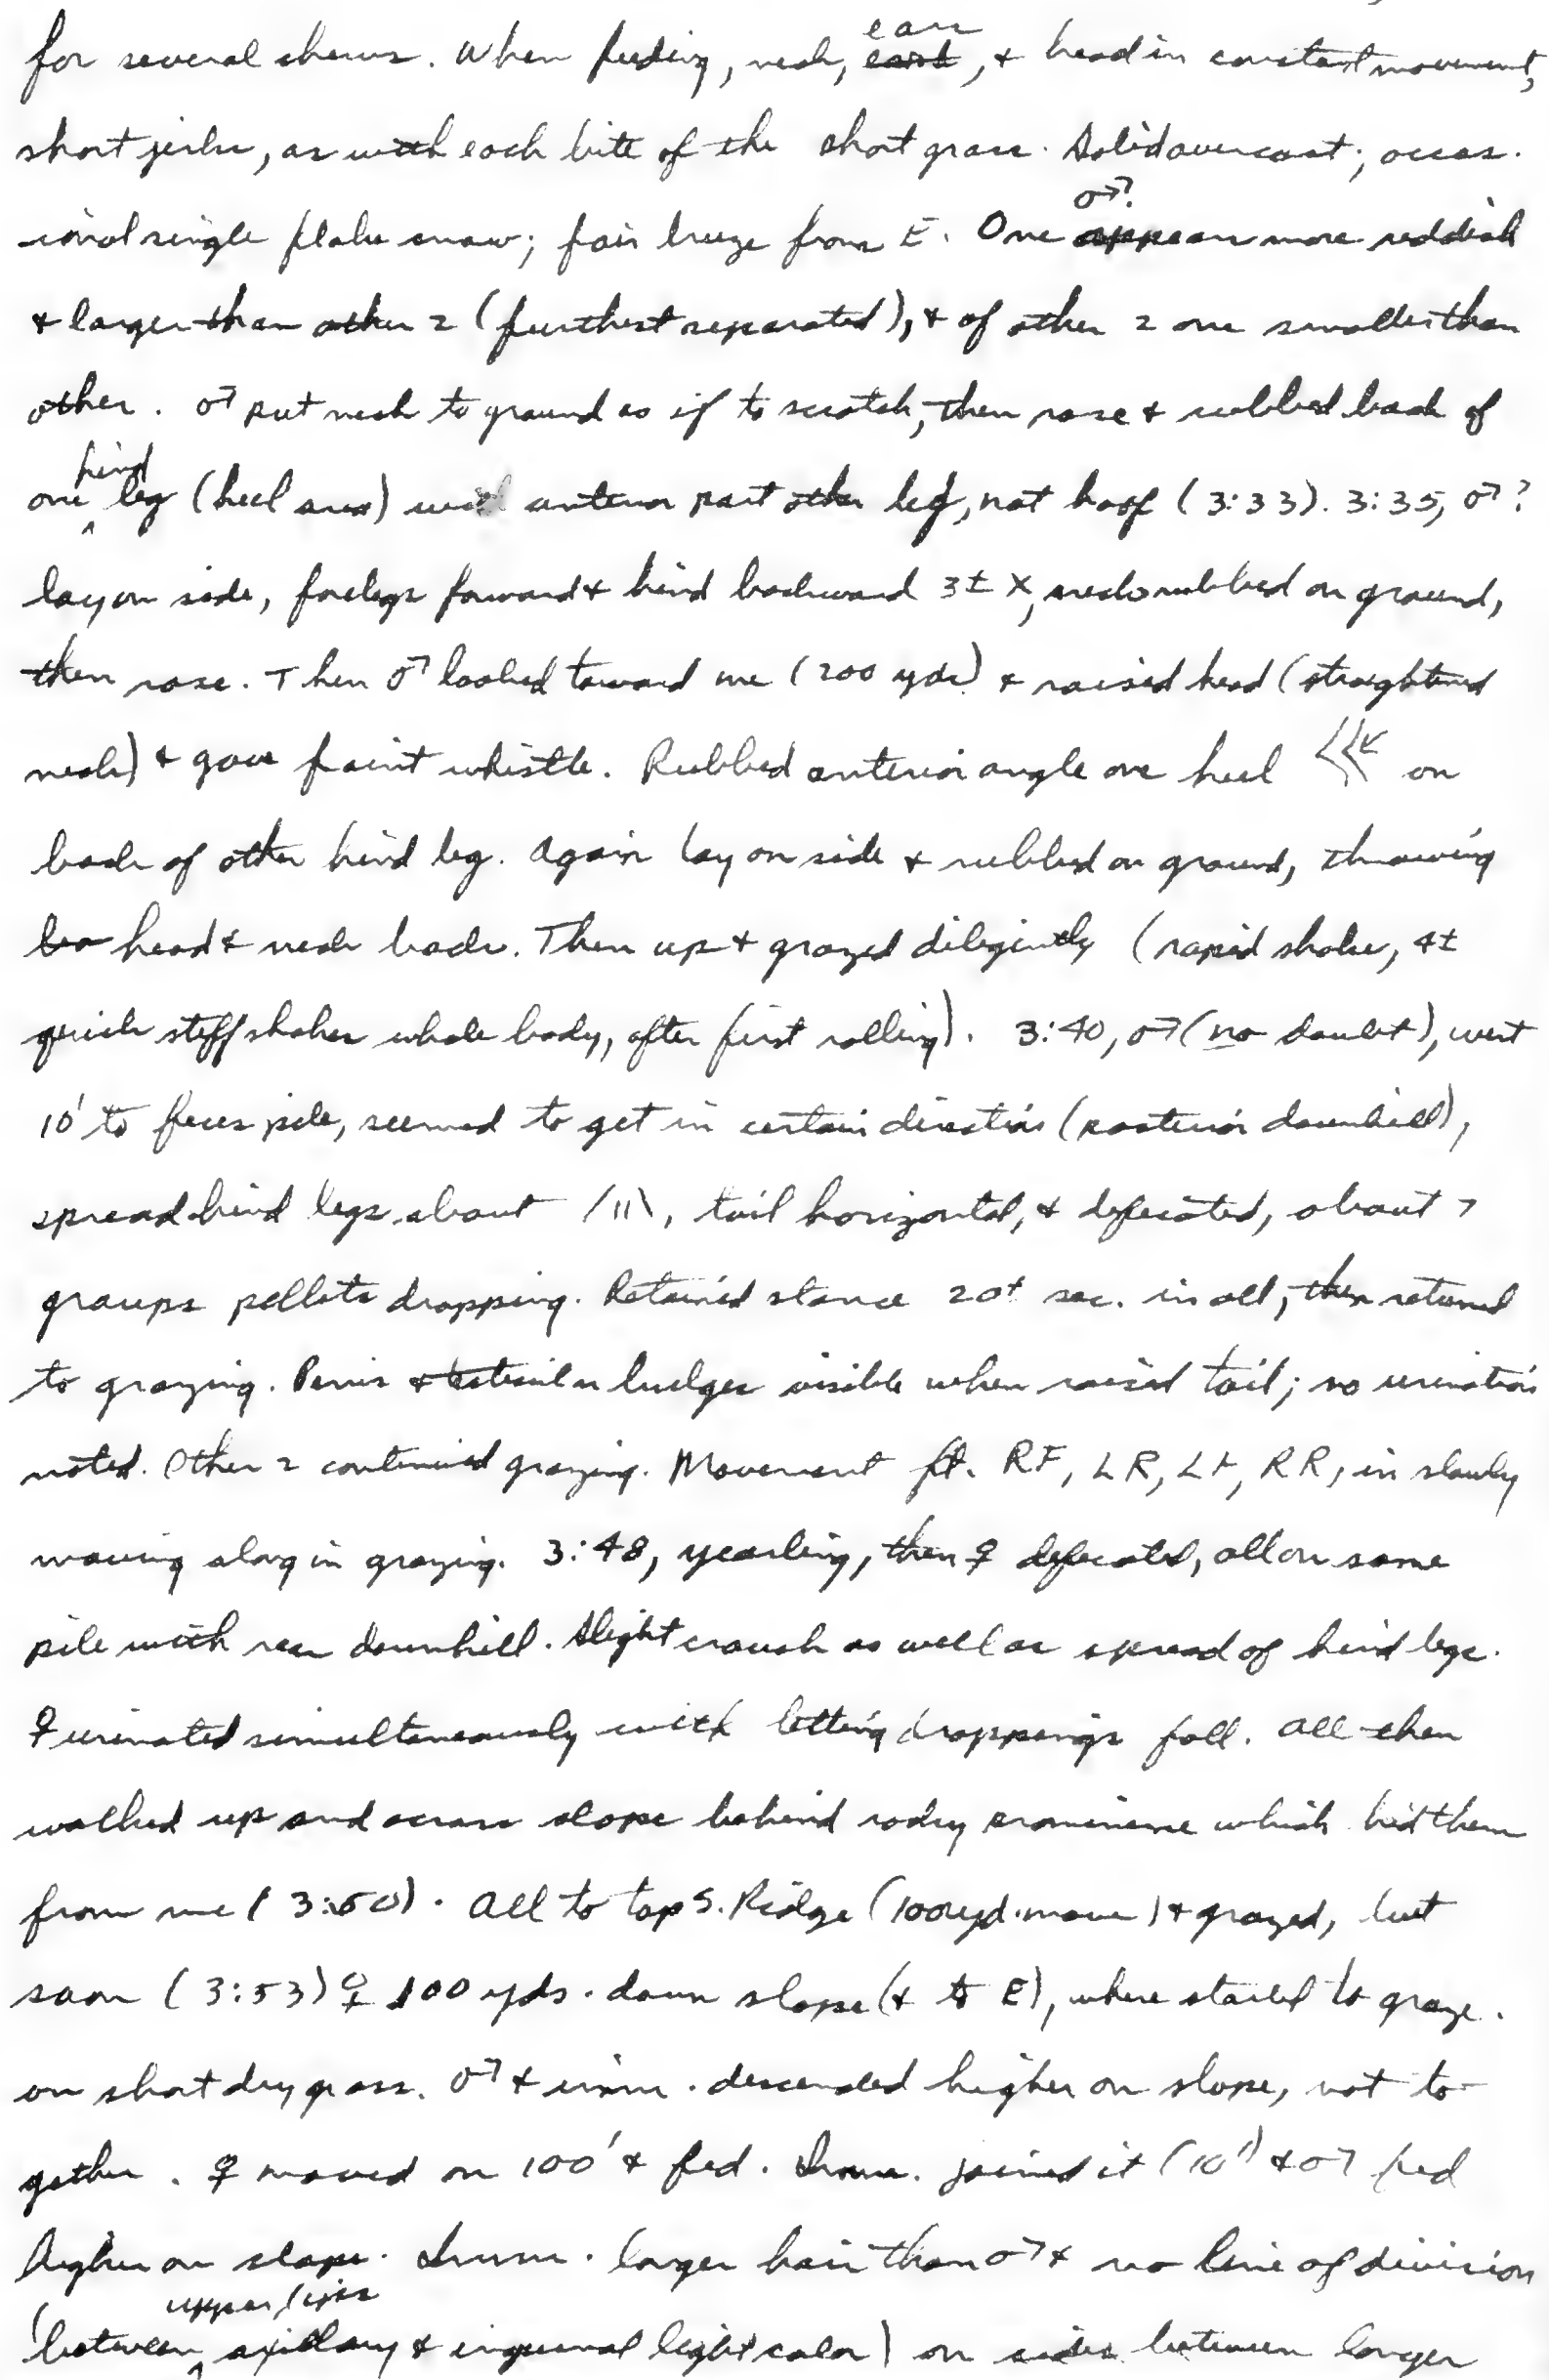 for several chews. When feeding, neck, ears, & head in constant movement,
short jerks, as with each bite of the short grass. Solid overcast; occas-
ional single flake snow; fair breeze from E. One ♂? appears more reddish
& larger than other 2 (furthest separated), & of other 2 one smaller than
other. ♂ put neck to ground as if to scratch, then rose & rubbed back of
one hind leg (heel area) with anterior part other leg, not hoof (3:33). 3:35, ♂?
lay on side, forelegs forward & hind backward 3± X, neck rubbed on ground,
then rose. Then ♂ looked toward me (200 yds) & raised head (straightened
neck) & gave faint whistle. Rubbed anterior angle one heel on
back of other hind leg. Again lay on side & rubbed on ground, throwing
head & neck back. Then up & grazed diligently (rapid shake, 4±
quick stiff shakes whole body, after first rolling). 3:40, ♂ (no doubt), went
10' to feces pile, seemed to get in certain direction (posterior downhill),
spread hind legs about /||\, tail horizontal, & defecated, about 7
groups pellets dropping. Retained stance 20± sec. in all, then returned
to grazing. Penis & testicular bulges visible when raised tail; no urination
noted. Other 2 continued grazing. Movement ft. RF, LR, LF, RR, in slowly
moving along in grazing. 3:48, yearling, then ♀ defecated, all on same
pile with rear downhill. Slight crouch as well as spread of hind legs.
♀ urinated simultaneously with letting droppings fall. All then
walked up and across slope behind rocky prominence which hid them
from me (3:50). All to top S. Ridge (100 yd. move) & grazed, but
soon (3:53) ♀ 100 yds. down slope (& to E), where started to graze.
on short dry grass. ♂ & imm. descended higher on slope, not to-
gether. ♀ moved on 100' & fed. Imm. joined it (10') & ♂ fed
higher on slope. Imm. longer hair than ♂ & no line of division
(between upper / axillary & inguinal light color) on sides between longer